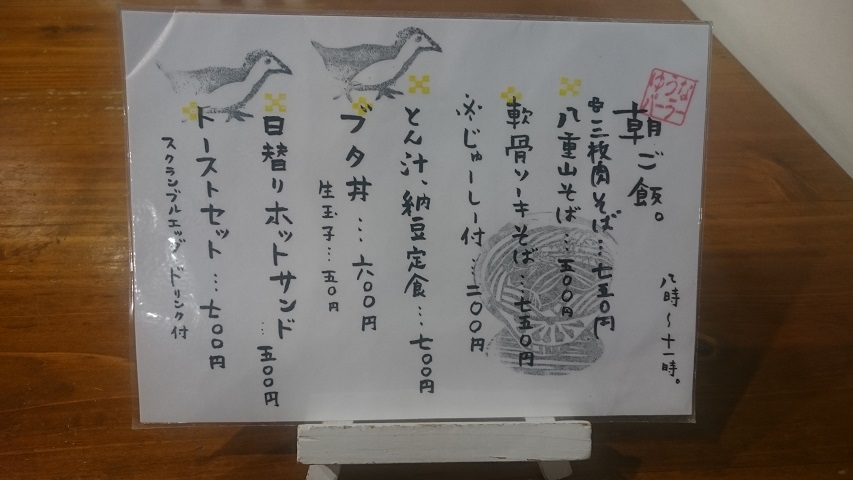 ゆうな
パーラー
朝ご飯。
八時～十一時。
三枚肉そば…七五〇円
八重山そば…五〇〇円
軟骨ソーキそば…七五〇円
※じゅーしー付…二〇〇円
とん汁、納豆定食…七〇〇円
ブタ丼…六〇〇円
生玉子…五〇円
日替りホットサンド
…五〇〇円
トーストセット…七〇〇円
スクランブルエッグ、ドリンク付